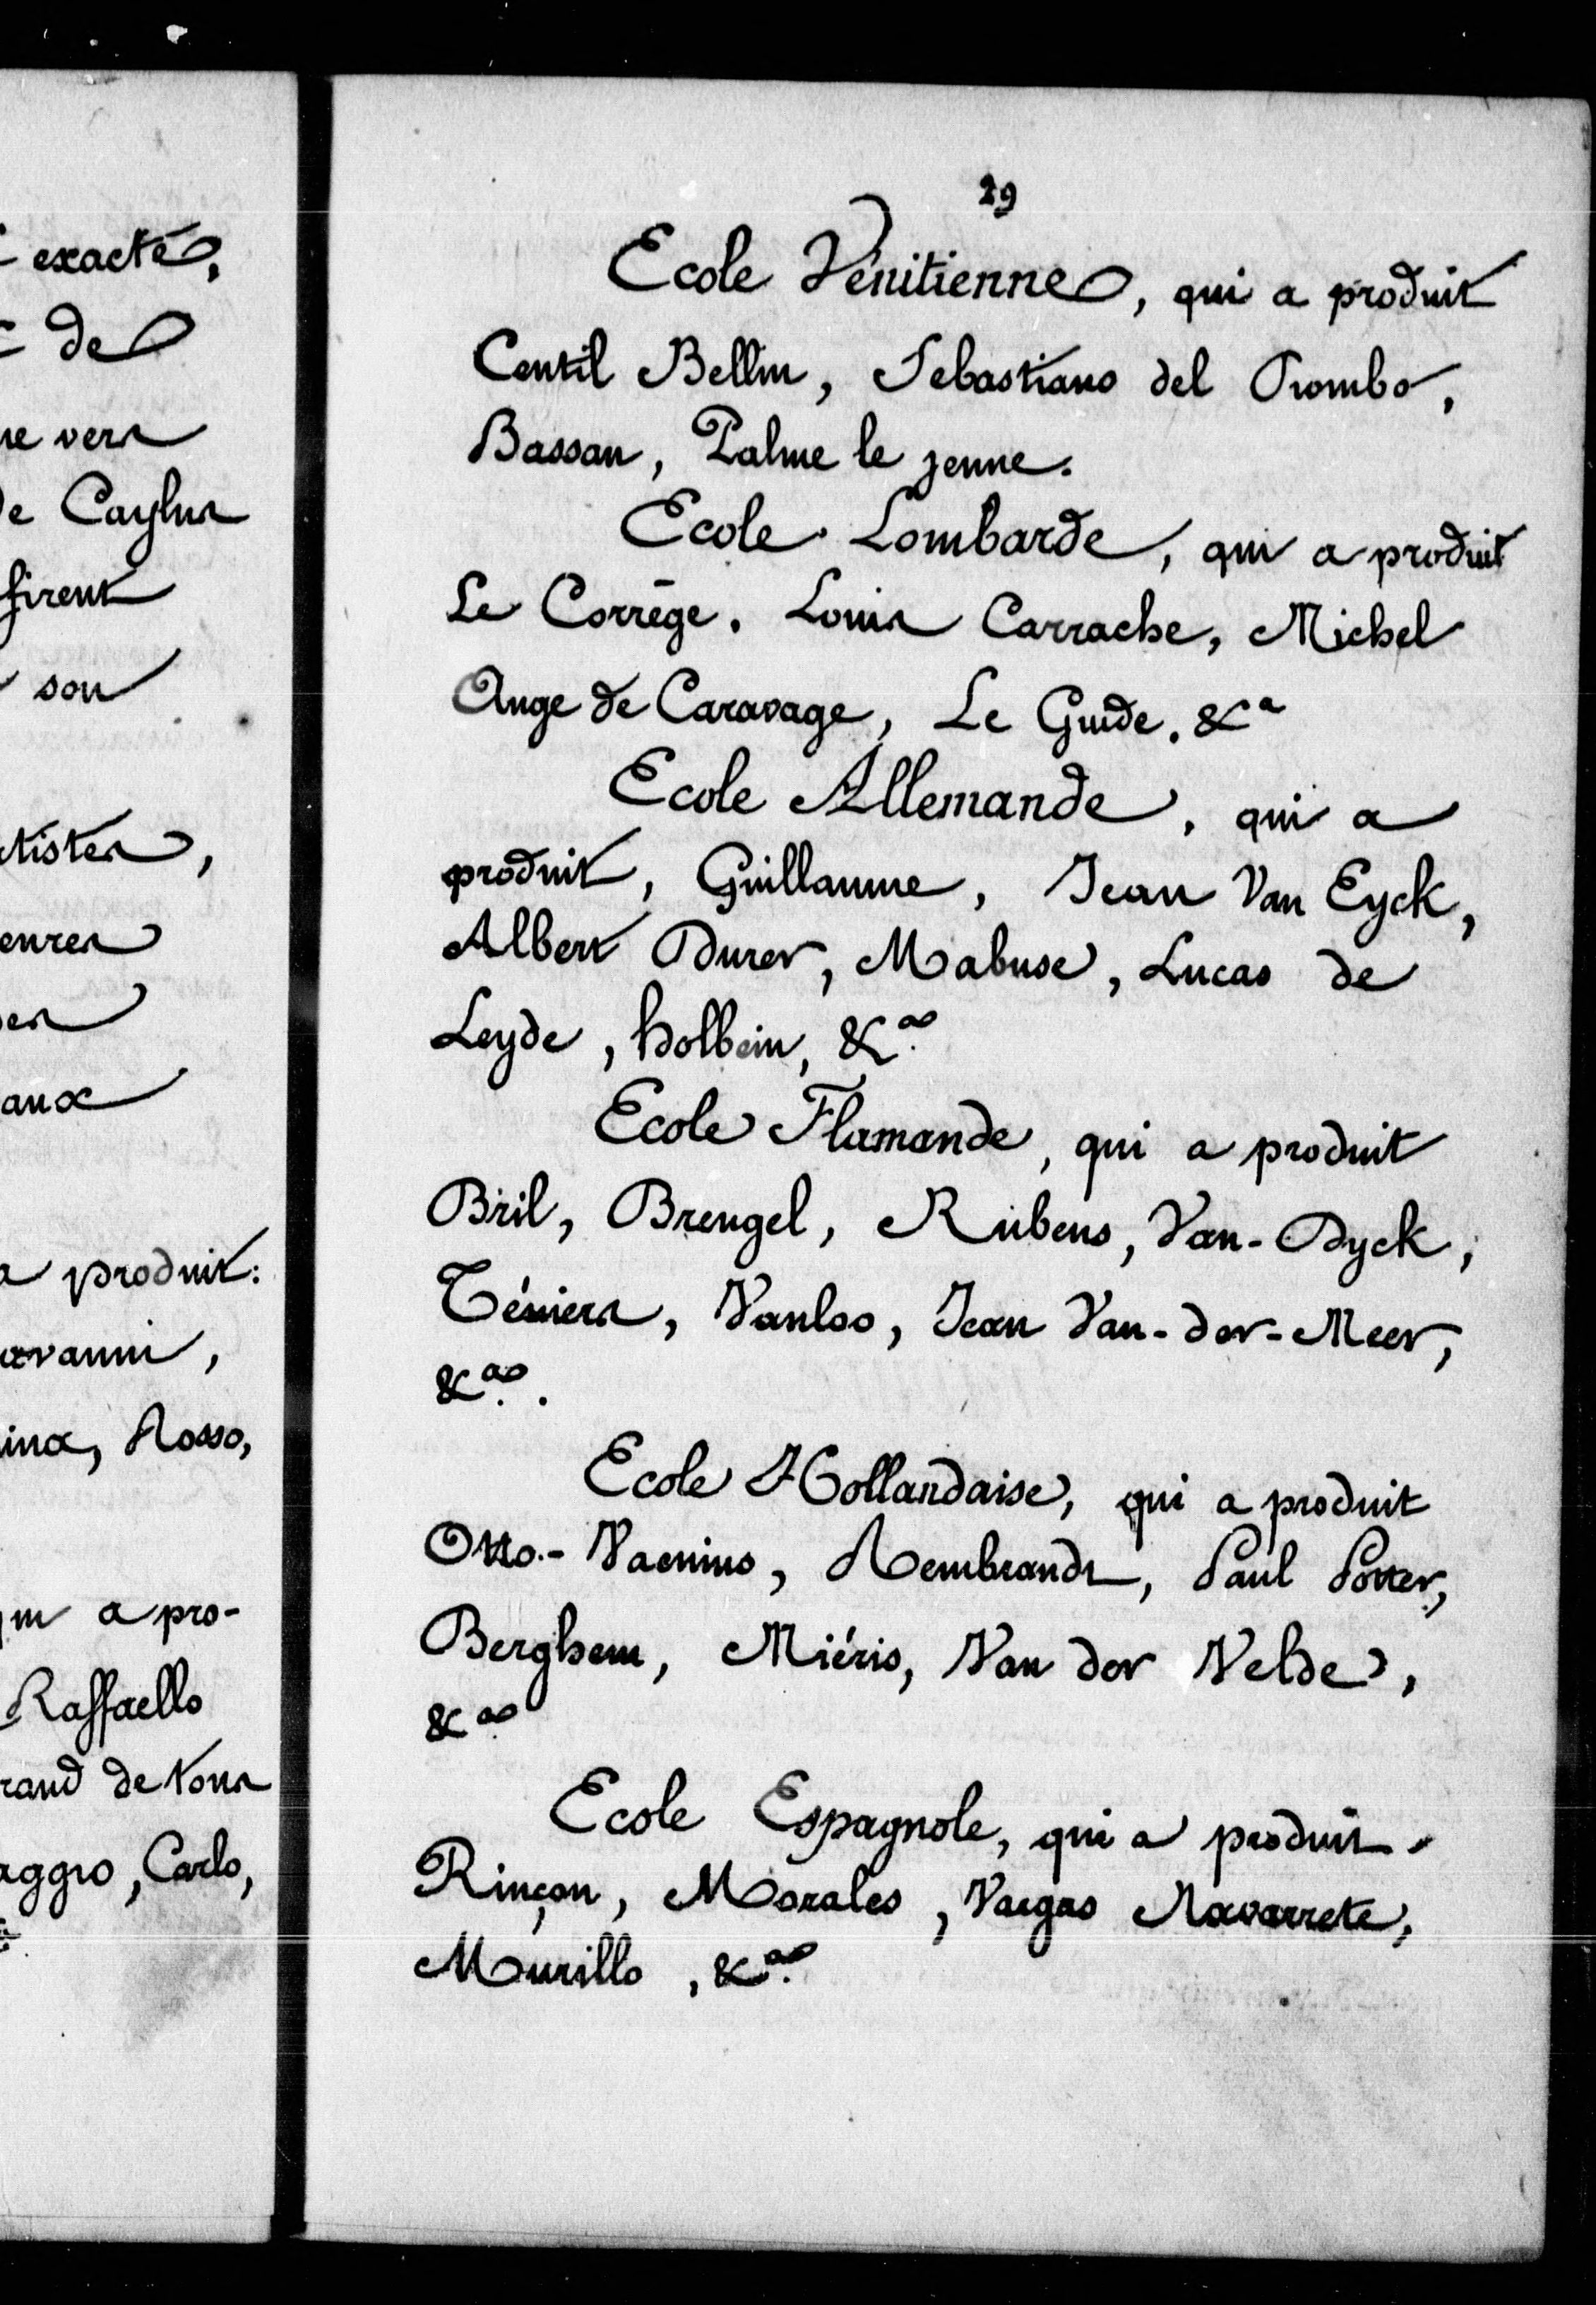 exacte,
de
ne vers
de Caylus
firent
son
tistes,
enres
des
aux
a produit:
avanni,
ina, Rosso,
qui a pro-
Raffaello
rand de tous
aggio, Carlo,
29
Ecole Vénitienne, qui a produit
Centil Bellin, Sebastiano del Piombo,
Bassan, Palme le jeune.
Ecole Lombarde, qui a produit
Le Corrège. Louis Carrache, Michel
Ange de Caravage, Le Guide. &a
Ecole Allemande, qui a
produit, Guillaume, Jean Van Eyck,
Albert Durer, Mabuse, Lucas de
Leyde, holbein, &a.
Ecole Flamande, qui a produit
Bril, Breugel, Rubens, Van-Dyck,
Téniers, Vanloo, Jean Van-der-Meer,
&a..
Ecole Hollandaise, qui a produit
Otto.- Vaenius, Rembrandt, Paul Potter,
Berghem, Miéris, Van der Velde,
&a.
Ecole Espagnole, qui a produit
Rinçon, Morales, Vargas Navarrete,
Murillo, &a.